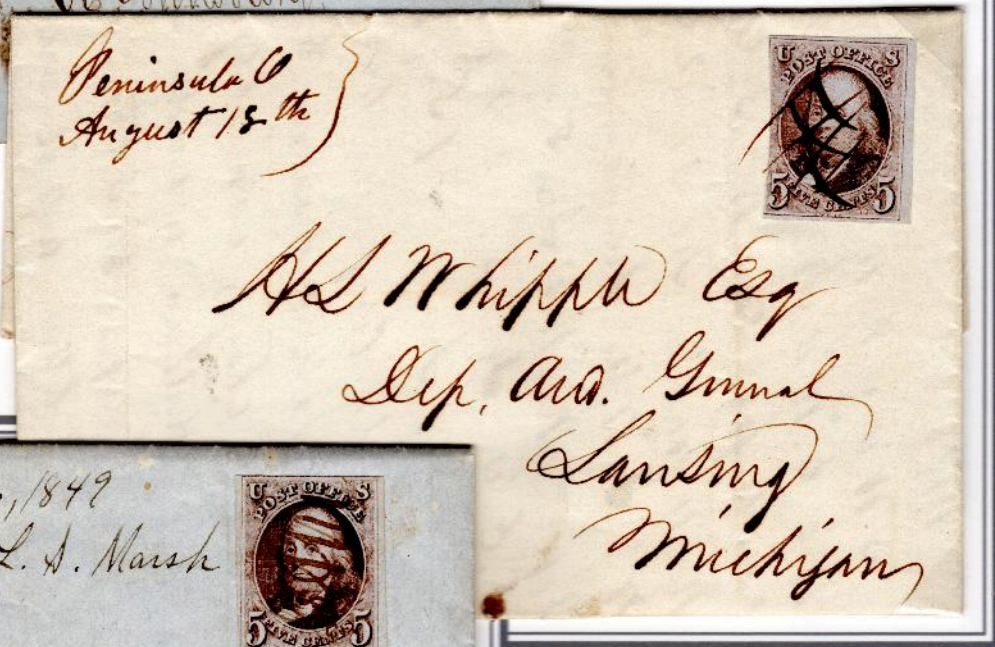 Peninsula O
August 18th
U S
POST OFFICE
5 FIVE CENTS 5
H L Whipple Esq
Dep. Aud. General
Lansing
Michigan
, 1849
L. S. Marsh
U S
POST OFFICE
5 FIVE CENTS 5